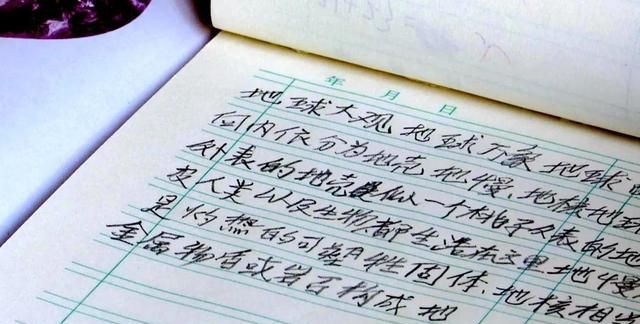 年 月 日
地球大观 地球万象 地球
向内依分为地壳、地慢、地核地
外表的地壳是似一个桃子外表的地
人类以及生物都生活在这里地慢
是灼热的可塑性固体.地核相当
金属物质或岩石构成地